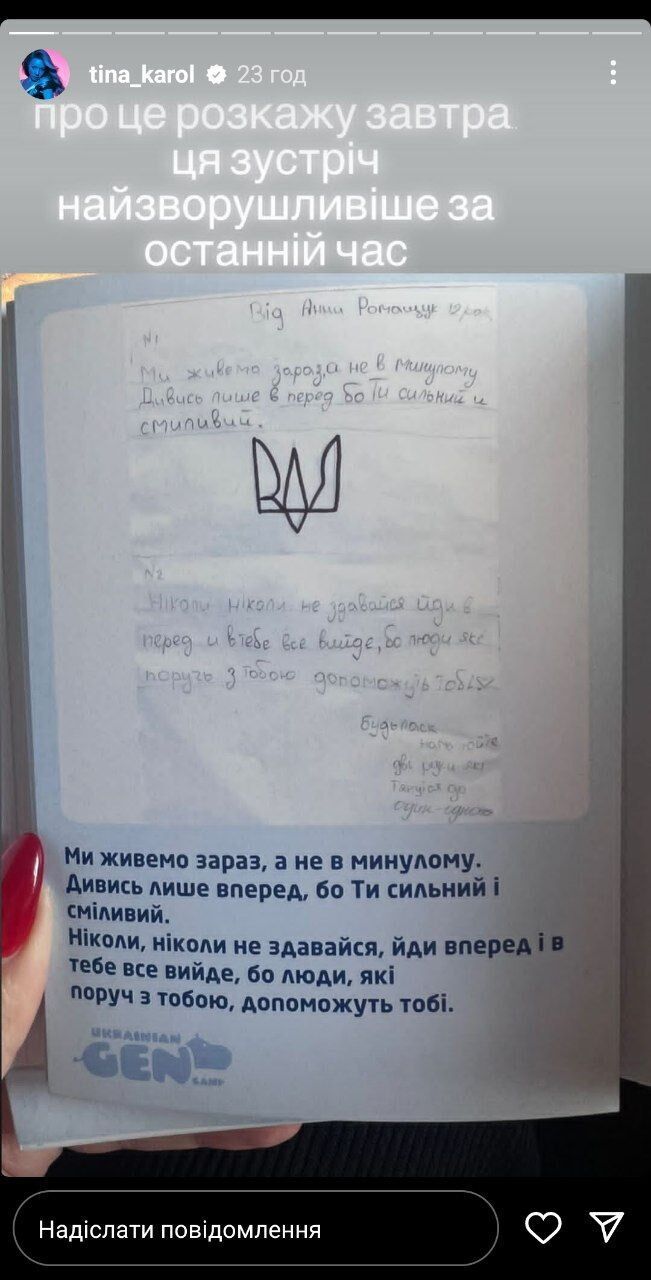 tina_karol 23 год
про це розкажу завтра..
ця зустріч
найзворушливіше за
останній час
Від Анни Ромащук 12 рок.
№1
Ми живемо зараз,а не в минулому
Дивись лише в перед бо Ти сильний и
смиливий.
№2
Ніколи ніколи не здавайся йди в
перед и втебе все вийде, бо люди яке
поруч з тобою допоможуть тобі
Будьласк
дві руки які
Тянуться до
один-одного
Ми живемо зараз, а не в минулому.
Дивись лише вперед, бо Ти сильний і
сміливий.
Ніколи, ніколи не здавайся, йди вперед і в
тебе все вийде, бо люди, які
поруч з тобою, допоможуть тобі.
UKRAINIAN
GEN
CAMP
Надіслати повідомлення